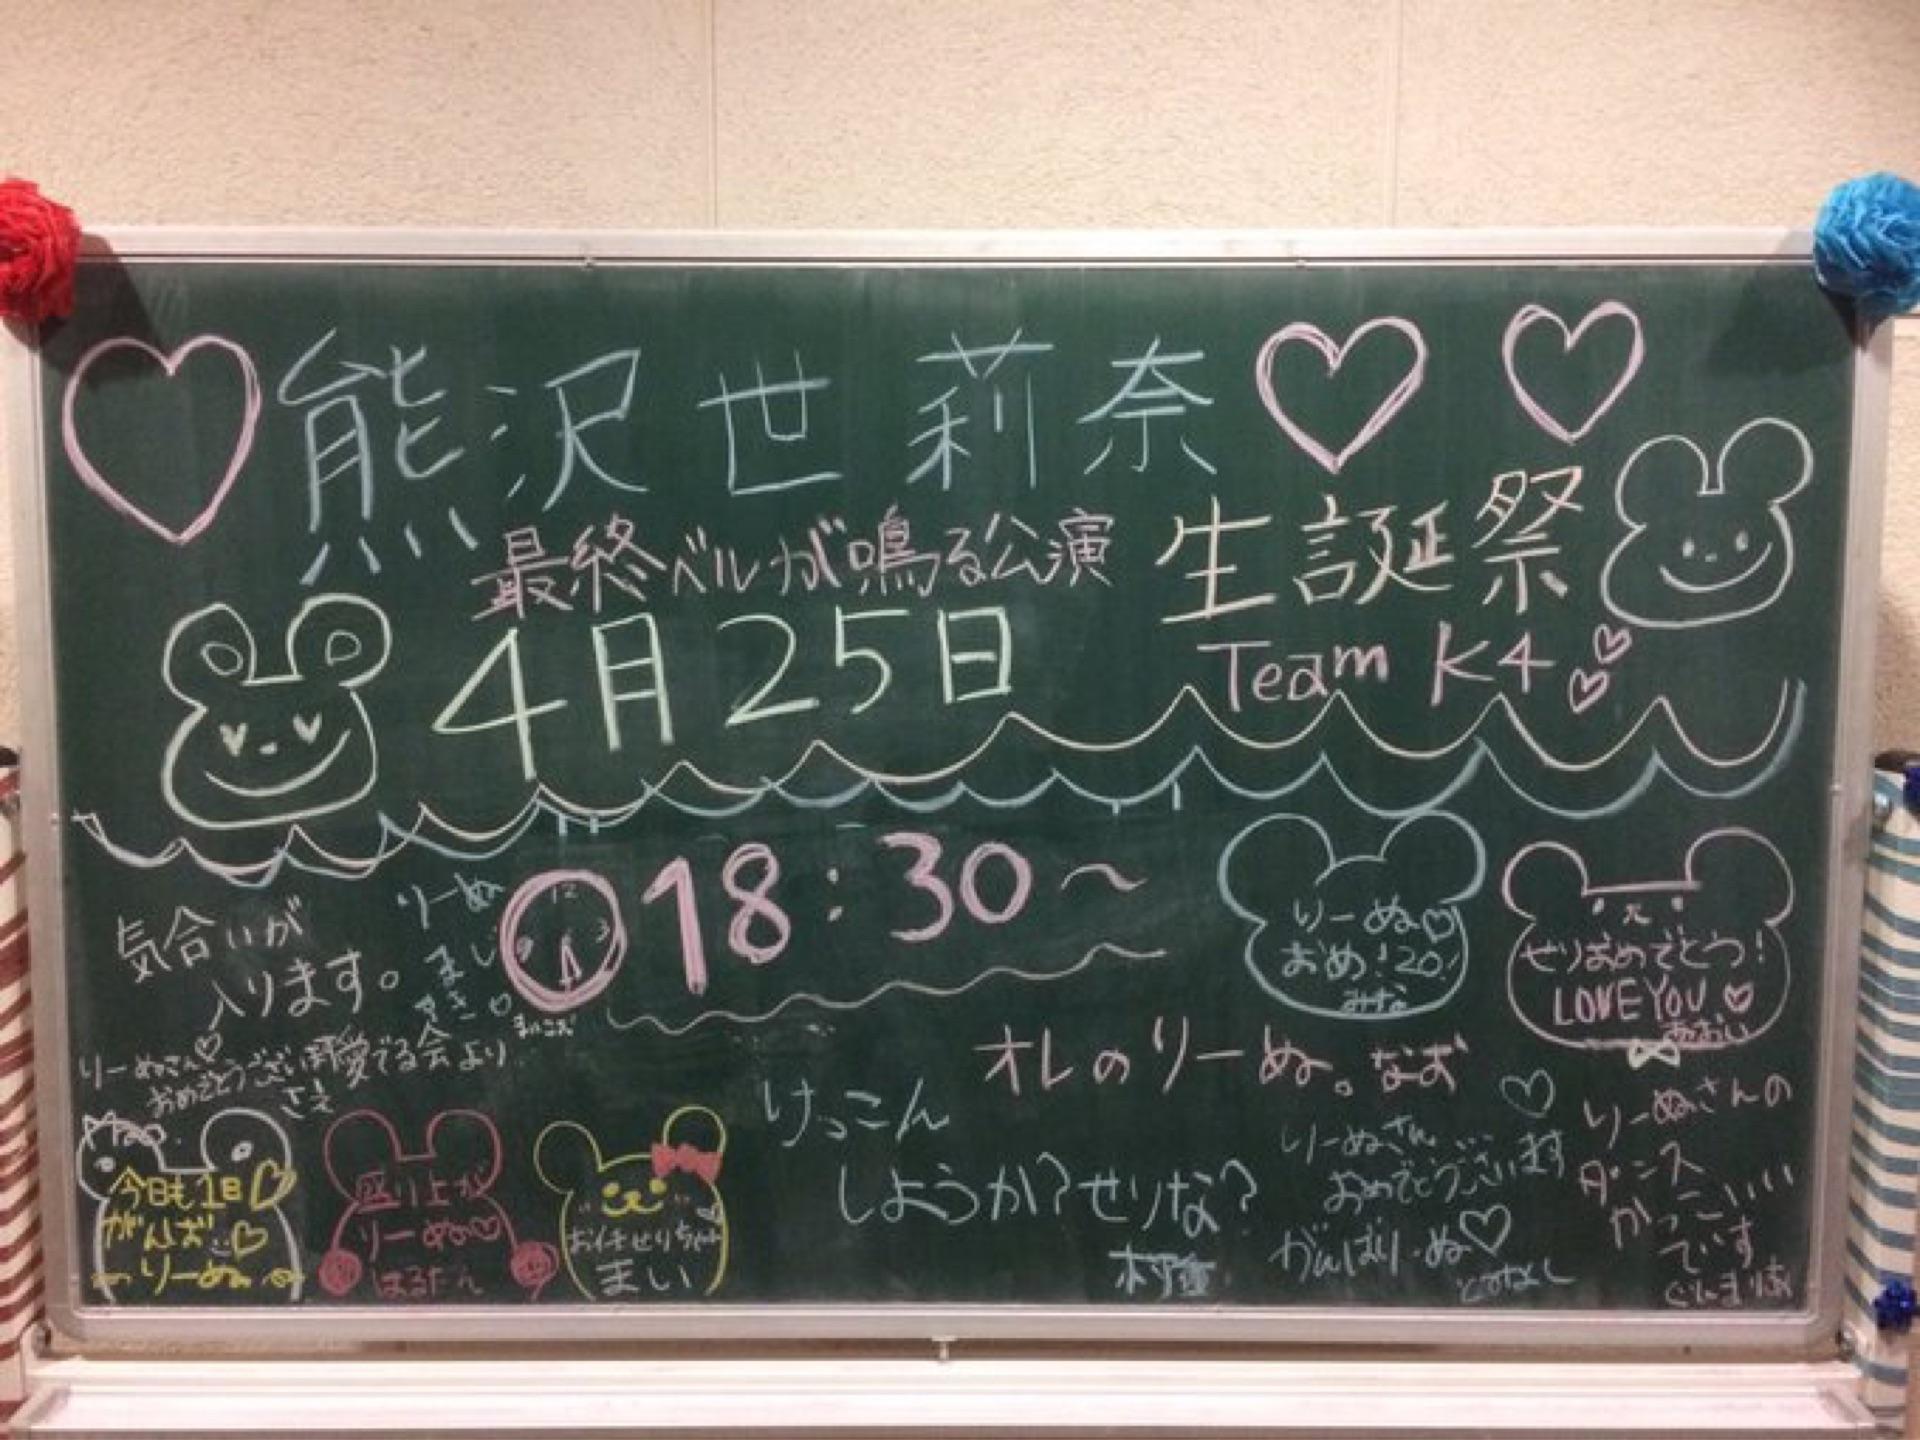 熊沢世莉奈
最終ベルが鳴る公演
生誕祭
4月25日
Team K4
18:30〜
12
3
9
気合いが
入ります。
りーぬ
まじ
すき
りーぬ♡
おめ!20!
みな
せりおめでとう!
LOVE YOU♡
あおい
りーぬさん♡
おめでとうござい
愛でる会より
さえ
オレのりーぬ。なお
けっこん
しようか?せりな?
今日も1日♡
がんば
りーぬ
盛り上が
りーぬ♡
はるたん
お任せりちゃん
まい
りーぬさん
おめでとうございます
がんばりーぬ♡
りーぬさんの
ダンス
かっこいい
です